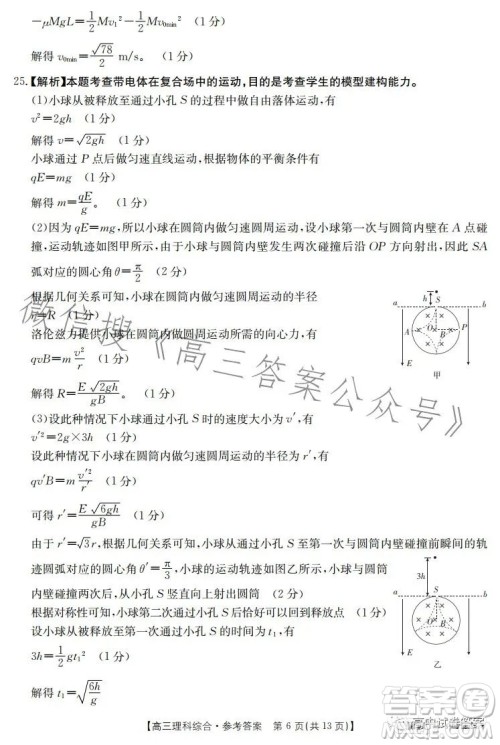 −μMgL=1/2Mv₁²−1/2Mv₀ₘᵢₙ²
解得 v₀ₘᵢₙ=√78/2 m/s。 (2分)
25.【解析】本题考查带电体在复合场中的运动,目的是考查学生的模型建构能力。
(1)小球从被释放至通过小孔S的过程做自由落体运动,有
v²=2gh (1分)
解得 v=√2gh (1分)
小球通过P点后做匀速直线运动,根据物体的平衡条件有
qE=mg (1分)
解得 m=qE/g。 (1分)
(2)因为qE=mg,所以小球在圆筒内做匀速圆周运动,设小球第一次与圆筒内壁在A点碰
撞,运动轨迹如图甲所示,由于小球与圆筒内壁发生两次碰撞后沿OP方向射出,因此SA
弧对应的圆心角θ=π/2 (2分)
根据几何关系可知,小球在圆筒内做匀速圆周运动的半径
r=R (1分)
洛伦兹力提供小球在圆筒内做匀速圆周运动所需的向心力,有
qvB=m v²/r (1分)
解得 R=E√2gh/gB。 (1分)
(3)设此种情况下小球通过小孔S时的速度大小为v′,有
v′²=2g×3h (1分)
设此种情况下小球在圆筒内做匀速圆周运动的半径为r′,有
qv′B=m v′²/r′ (1分)
可得 r′=E√6gh/gB (1分)
由于r′=√3r,根据几何关系可知,小球从通过小孔S至第一次与圆筒内壁碰撞前瞬间的轨
迹圆弧对应的圆心角θ′=π/3,小球在圆筒
内壁碰撞两次后,从小孔S竖直向上射出圆筒 (2分)
根据对称性可知,小球第二次通过小孔S后恰好可以回到释放点 (1分)
设小球从被释放至第一次通过小孔S的时间为t₁,有
3h=1/2gt₁² (1分)
解得 t₁=√6h/g (1分)
h
S
a
b
A
O
B
P
E
E
甲
3h
S
a
b
O
B
E
E
乙
微信搜《高三答案公众号》
【高三理科综合·参考答案 第6页(共13页)】